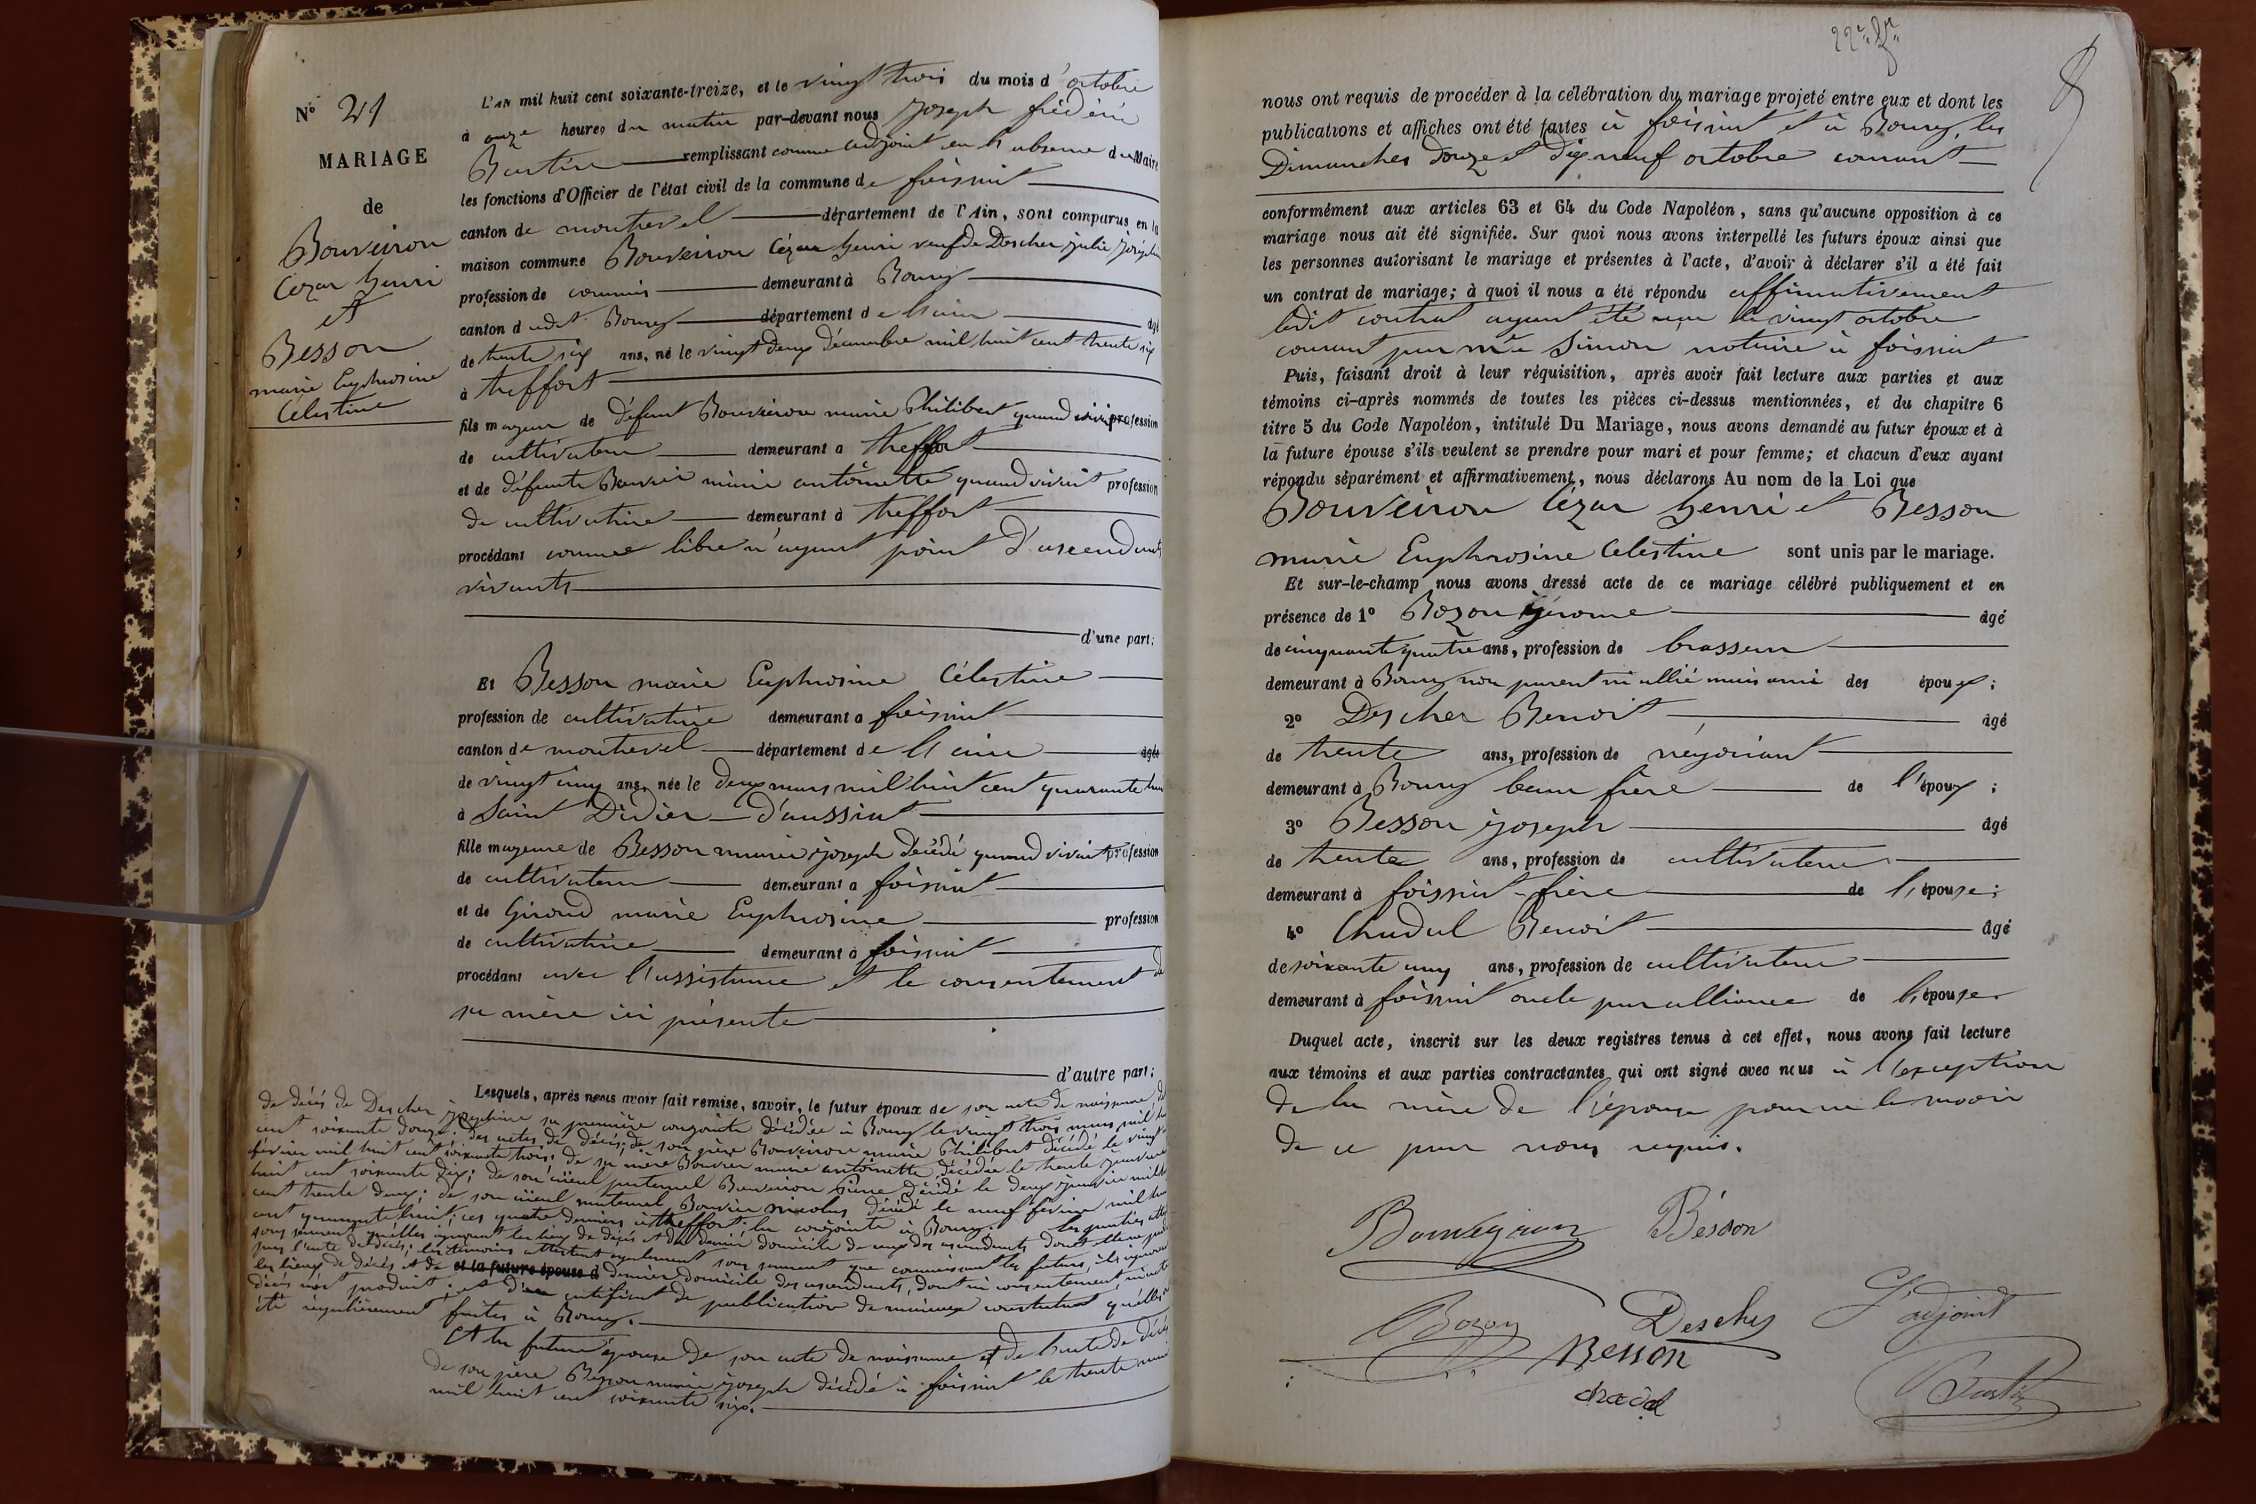 N° 21
MARIAGE
de
Bouveiron
Cézar henri
et
Besson
marie Euphrosine
Célestine
L'AN mil huit cent soixante-treize, et le vingt trois du mois d'octobre
à onze heures du matin par-devant nous Joseph frédéric
remplissant comme adjoint en l'absence du Maire
les fonctions d'Officier de l'état civil de la commune de foissiat
canton de montrevel département de l'Ain, sont comparus en la
maison commune Bouveiron Cézar henri veuf de Descher julie joséphine
profession de commis demeurant à Bourg
canton dudit Bourg département de l'ain âgé
de trente six ans, né le vingt deux décembre mil huit cent trente six
à treffort
fils majeur de défunt Bouveiron marie Philibert quand vivait profession
de cultivateur demeurant à treffort
et de défunte Bouvier marie antoinette quand vivait profession
de cultivatrice demeurant à treffort
procédant comme libre n'ayant point d'ascendants
vivants
d'une part;
Et Besson marie Euphrosine Célestine
profession de cultivatrice demeurant à foissiat
canton de montrevel département de l'ain âgée
de vingt cinq ans, née le deux mars mil huit cent quarante huit
à Saint Didier d'aussiat
fille majeure de Besson marie joseph décédé quand vivait profession
de cultivateur demeurant à foissiat
et de Giroud marie Euphrosine profession
de cultivatrice demeurant à foissiat
procédant avec l'assistance et le consentement de
sa mère ici présente
d'autre part;
Lesquels, après nous avoir fait remise, savoir, le futur époux de son acte de naissance
de décès de Descher joséphine sa première conjointe décédée à Bourg le vingt trois mars mil huit
cent soixante douze; des actes de décès: de son père Bouveiron marie Philibert décédé le vingt
février mil huit cent soixante trois; de sa mère Bouvier marie antoinette décédée le trente janvier
huit cent soixante dix; de son aïeul paternel Bouveiron Pierre décédé le deux janvier mil huit
cent trente deux; de son aïeul maternel Bouvier nicolas décédé le neuf février mil huit
cent quarante huit; ces quatre derniers à treffort la conjointe à Bourg. les parties attestent
sous serment qu'elles ignorent les lieux de décès et du dernier domicile de ceux des ascendants dont elles ne
pas l'acte de décès; les témoins attestent également sous serment que connaissant les futurs, ils ignorent
les lieux de décès et de et la future épouse d dernier domicile des ascendants, dont ni consentement, ni acte
décès n'est produit; et d'un certificat de publication de mariage constatant qu'elles
été régulièrement faites à Bourg.
Et la future épouse de son acte de naissance et de l'acte de décès
de son père Besson marie joseph décédé à foissiat le trente
mil huit cent soixante six.
nous ont requis de procéder à la célébration du mariage projeté entre eux et dont les
publications et affiches ont été faites à foissiat et à Bourg, les
Dimanches douze et dix neuf octobre courant
conformément aux articles 63 et 64 du Code Napoléon, sans qu'aucune opposition à ce
mariage nous ait été signifiée. Sur quoi nous avons interpellé les futurs époux ainsi que
les personnes autorisant le mariage et présentes à l'acte, d'avoir à déclarer s'il a été fait
un contrat de mariage; à quoi il nous a été répondu affirmativement
ledit contrat ayant été reçu le vingt octobre
courant par me Simon notaire à foissiat
Puis, faisant droit à leur réquisition, après avoir fait lecture aux parties et aux
témoins ci-après nommés de toutes les pièces ci-dessus mentionnées, et du chapitre 6
titre 5 du Code Napoléon, intitulé Du Mariage, nous avons demandé au futur époux et à
la future épouse s'ils veulent se prendre pour mari et pour femme; et chacun d'eux ayant
répondu séparément et affirmativement, nous déclarons Au nom de la Loi que
Bouveiron Cézar henri et Besson
marie Euphrosine Celestine sont unis par le mariage.
Et sur-le-champ nous avons dressé acte de ce mariage célébré publiquement et en
présence de 1° Bozon jérome âgé
de cinquante quatre ans, profession de brasseur
demeurant à Bourg non parent ni allié mais ami des époux;
2° Descher Benoit âgé
de trente ans, profession de négociant
demeurant à Bourg beau frère de l'époux;
3° Besson joseph âgé
de trente ans, profession de cultivateur
demeurant à foissiat frère de l'épouse;
4° Chadal Benoit âgé
de soixante cinq ans, profession de cultivateur
demeurant à foissiat oncle par alliance de l'épouse
Duquel acte, inscrit sur les deux registres tenus à cet effet, nous avons fait lecture
aux témoins et aux parties contractantes qui ont signé avec nous à l'exception
de la mère de l'épouse pour ne le savoir
de ce par nous requis.
Bouveyron Bésson
Bozon Descher L'adjoint
Besson
chadal